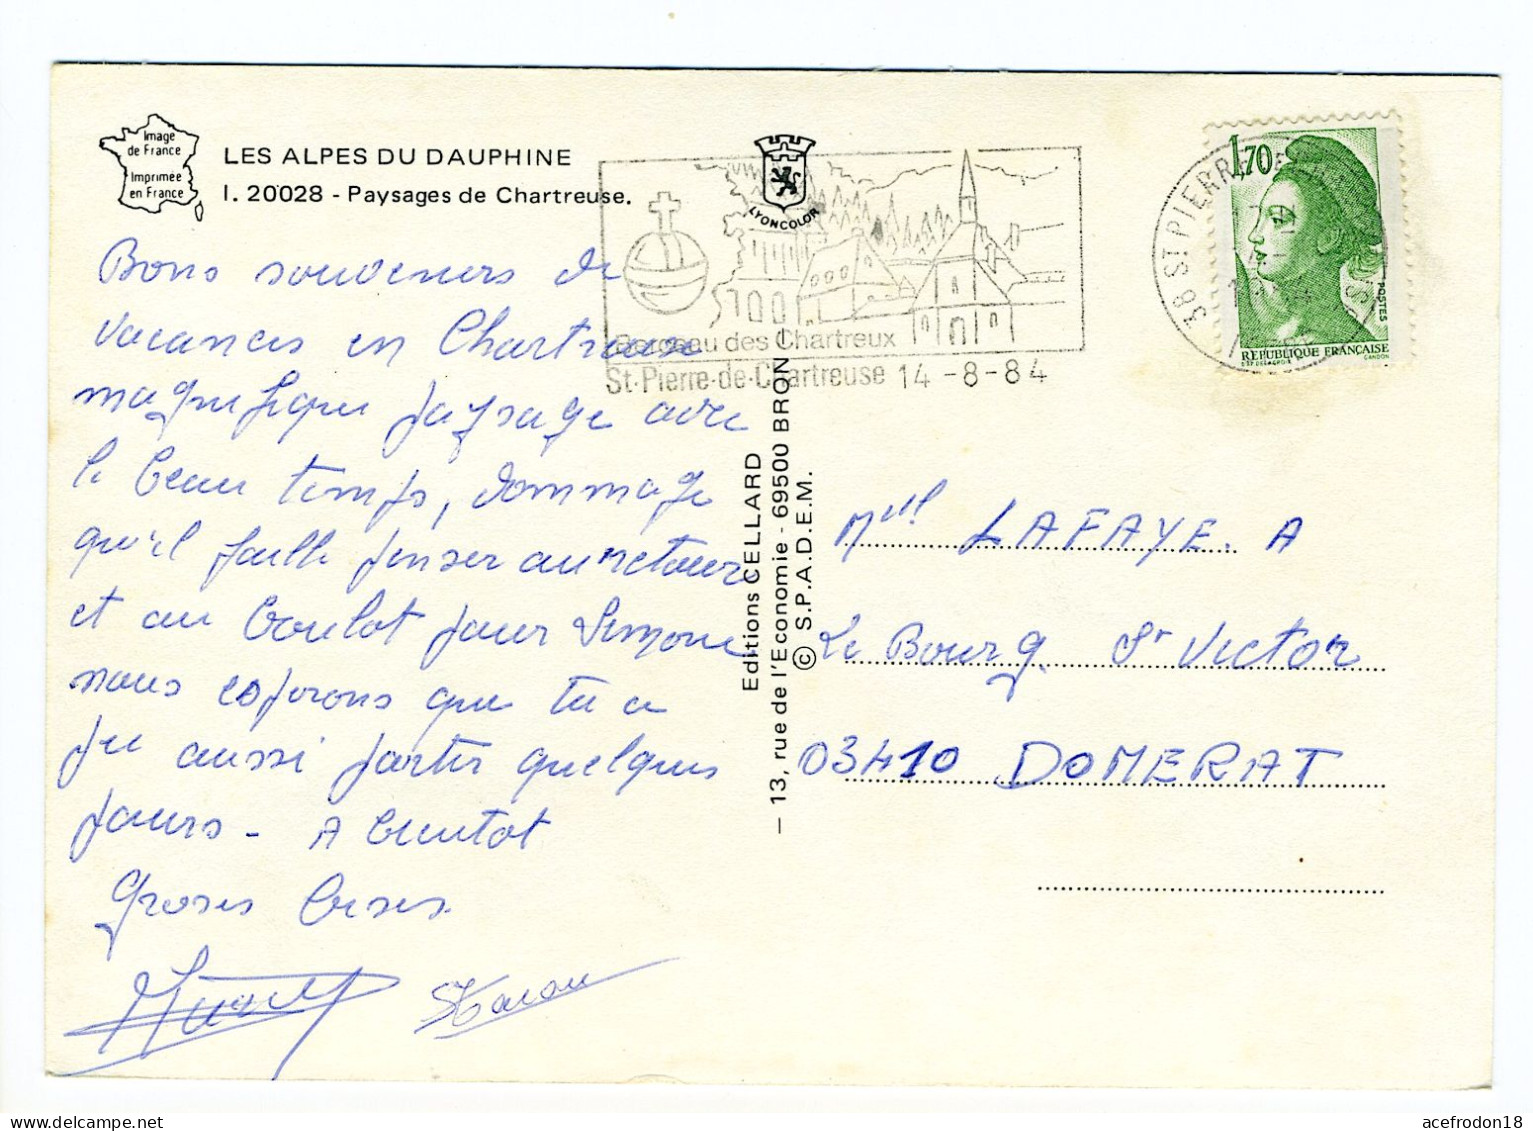 Image
de France
Imprimée
en France
LES ALPES DU DAUPHINE
I. 20028 - Paysages de Chartreuse.
LYONCOLOR
Berceau des Chartreux
St-Pierre-de-Chartreuse 14-8-84
38 ST PIERRE
1,70
POSTES
REPUBLIQUE FRANÇAISE
GANDON
Bons souvenirs de
vacances en Chartreuse
magnifique paysage avec
le beau temps, dommage
qu'il faille penser au retour
et au boulot pour Simone
nous esperons que tu a
pu aussi partir quelques
jours - A bientot
Groses Bises.
Editions CELLARD
- 13, rue de l'Economie - 69500 BRON
© S.P.A.D.E.M.
Mell LAFAYE. A
Le Bourg. St Victor
03410 DOMERAT
acefrodon18